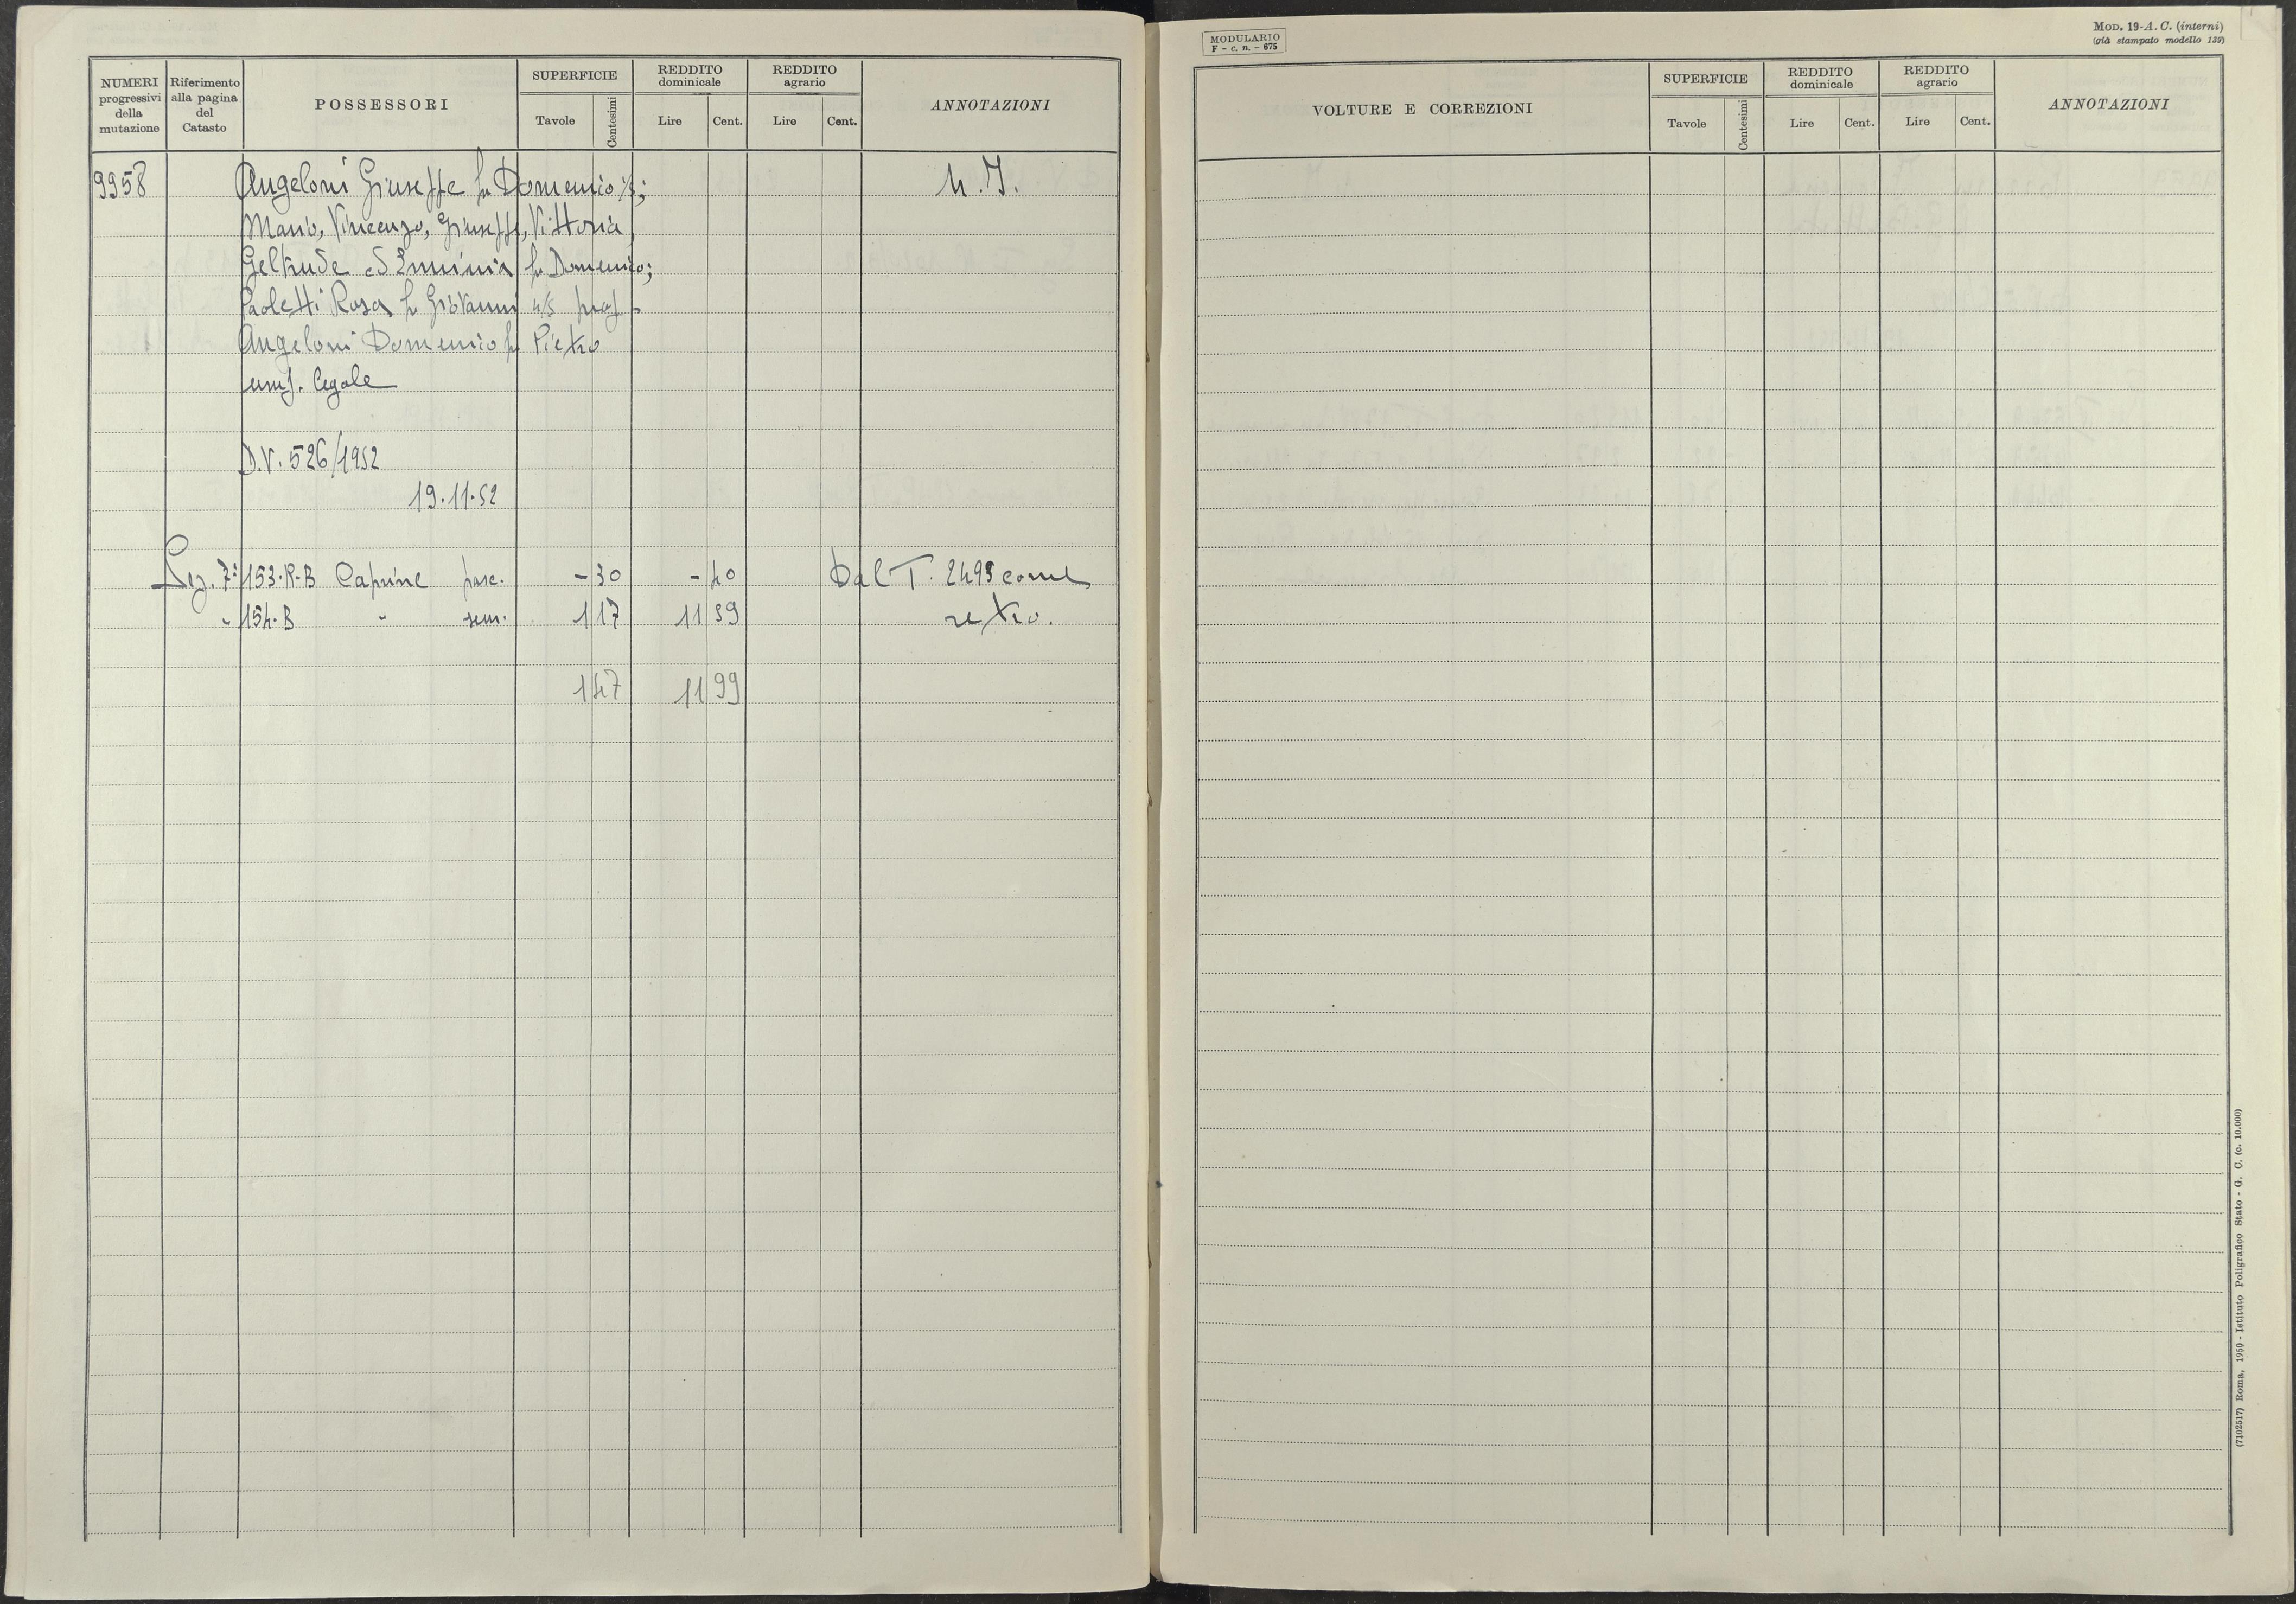 NUMERI progressivi della mutazione
Riferimento alla pagina del Catasto
POSSESSORI
SUPERFICIE
Tavole
Centesimi
REDDITO dominicale
Lire
Cent.
REDDITO agrario
Lire
Cent.
ANNOTAZIONI
9958 Angeloni Giuseppe fu Domenico ; N.I.
Mario, Vincenzo, Giuseppe, Vittoria,
Geltrude ed Erminia fu Domenico;
Paoletti Rosa fu Giovanni
Angeloni Domenico fu Pietro
usuf. legale
D.V. 526/1952
19.11.52
Sez. 7ª 153.R-B Caprine pasc. - 30 - 40 Dal T. 2493 come
" 154.B " sem. 1 17 11 59 retro.
1 47 11 99
MODULARIO
F - c. n. - 675
MOD. 19-A. C. (interni)
(già stampato modello 139)
VOLTURE E CORREZIONI
SUPERFICIE
Tavole
Centesimi
REDDITO dominicale
Lire
Cent.
REDDITO agrario
Lire
Cent.
ANNOTAZIONI
(7102517) Roma, 1950 - Istituto Poligrafico Stato - G. C. (c. 10.000)